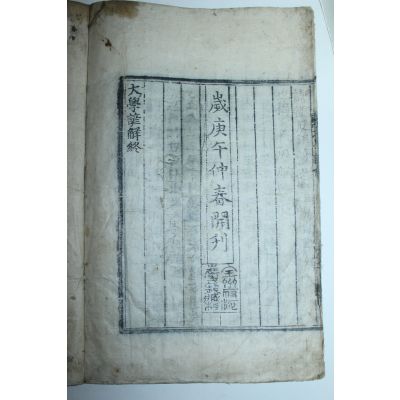 歲庚午仲春開刊
大學諺解終